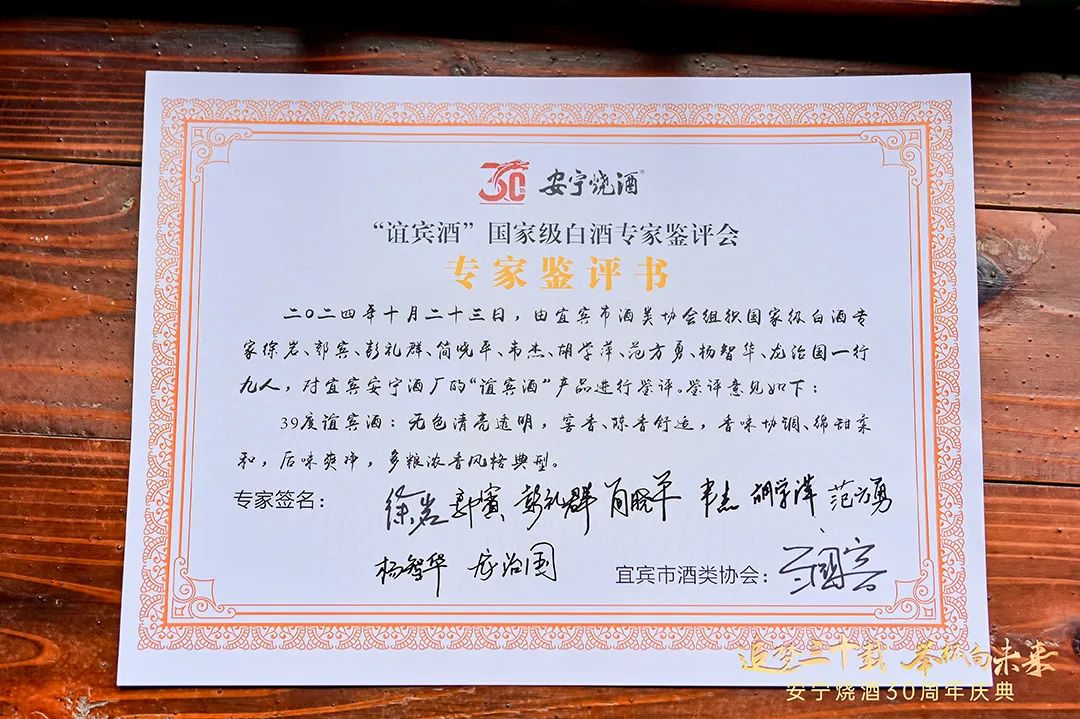 30th 安宁烧酒®
“谊宾酒”国家级白酒专家鉴评会
专家鉴评书
二〇二四年十月二十三日，由宜宾市酒类协会组织国家级白酒专
家徐岩、郭宾、彭礼群、简晓平、韦杰、胡学萍、范方勇、杨智华、龙治国一行
九人，对宜宾安宁酒厂的“谊宾酒”产品进行鉴评。鉴评意见如下：
39度谊宾酒：无色清亮透明，窖香、陈香舒适，香味协调、绵甜柔
和，后味爽净，多粮浓香风格典型。
专家签名：徐岩 郭宾 彭礼群 韦杰 范方勇
杨智华 龙治国 宜宾市酒类协会：
追梦三十载
安宁烧酒30周年庆典